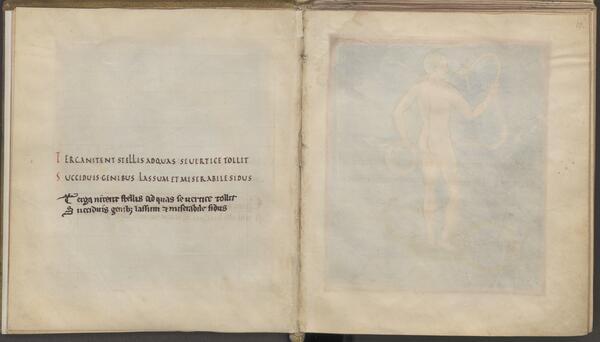 TERGA NITENT STELLIS AD QUAS SE VERTICE TOLLIT
SUCCIDUIS GENIBUS LASSUM ET MISERABILE SIDUS
Terga nitent stellis ad quas se vertice tollit
Succiduis genib; lassum & miserabile sidus